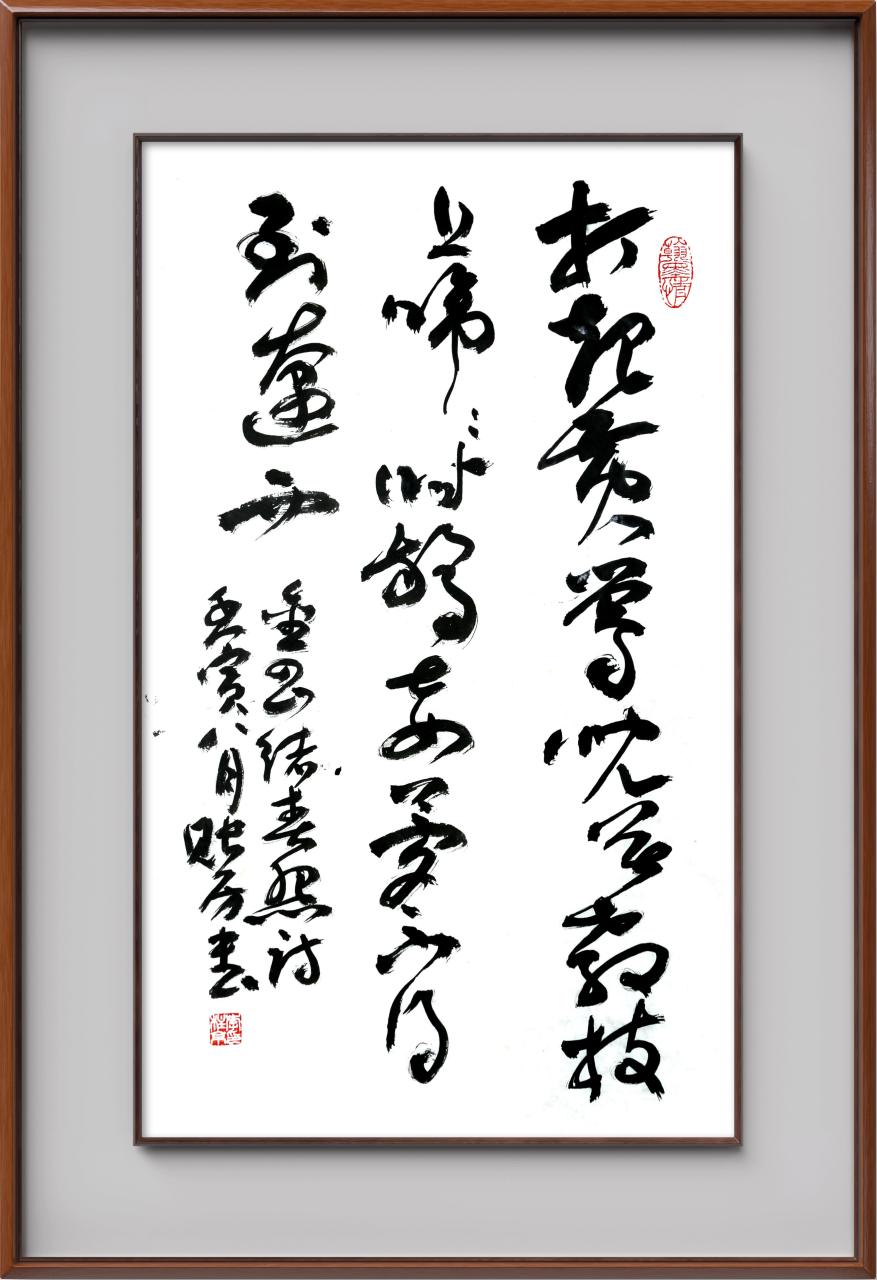 打起黄鶯兒莫教枝
上啼〻时驚妾夢不得
到遼西
金昌緒春怨詩
壬寅八月书